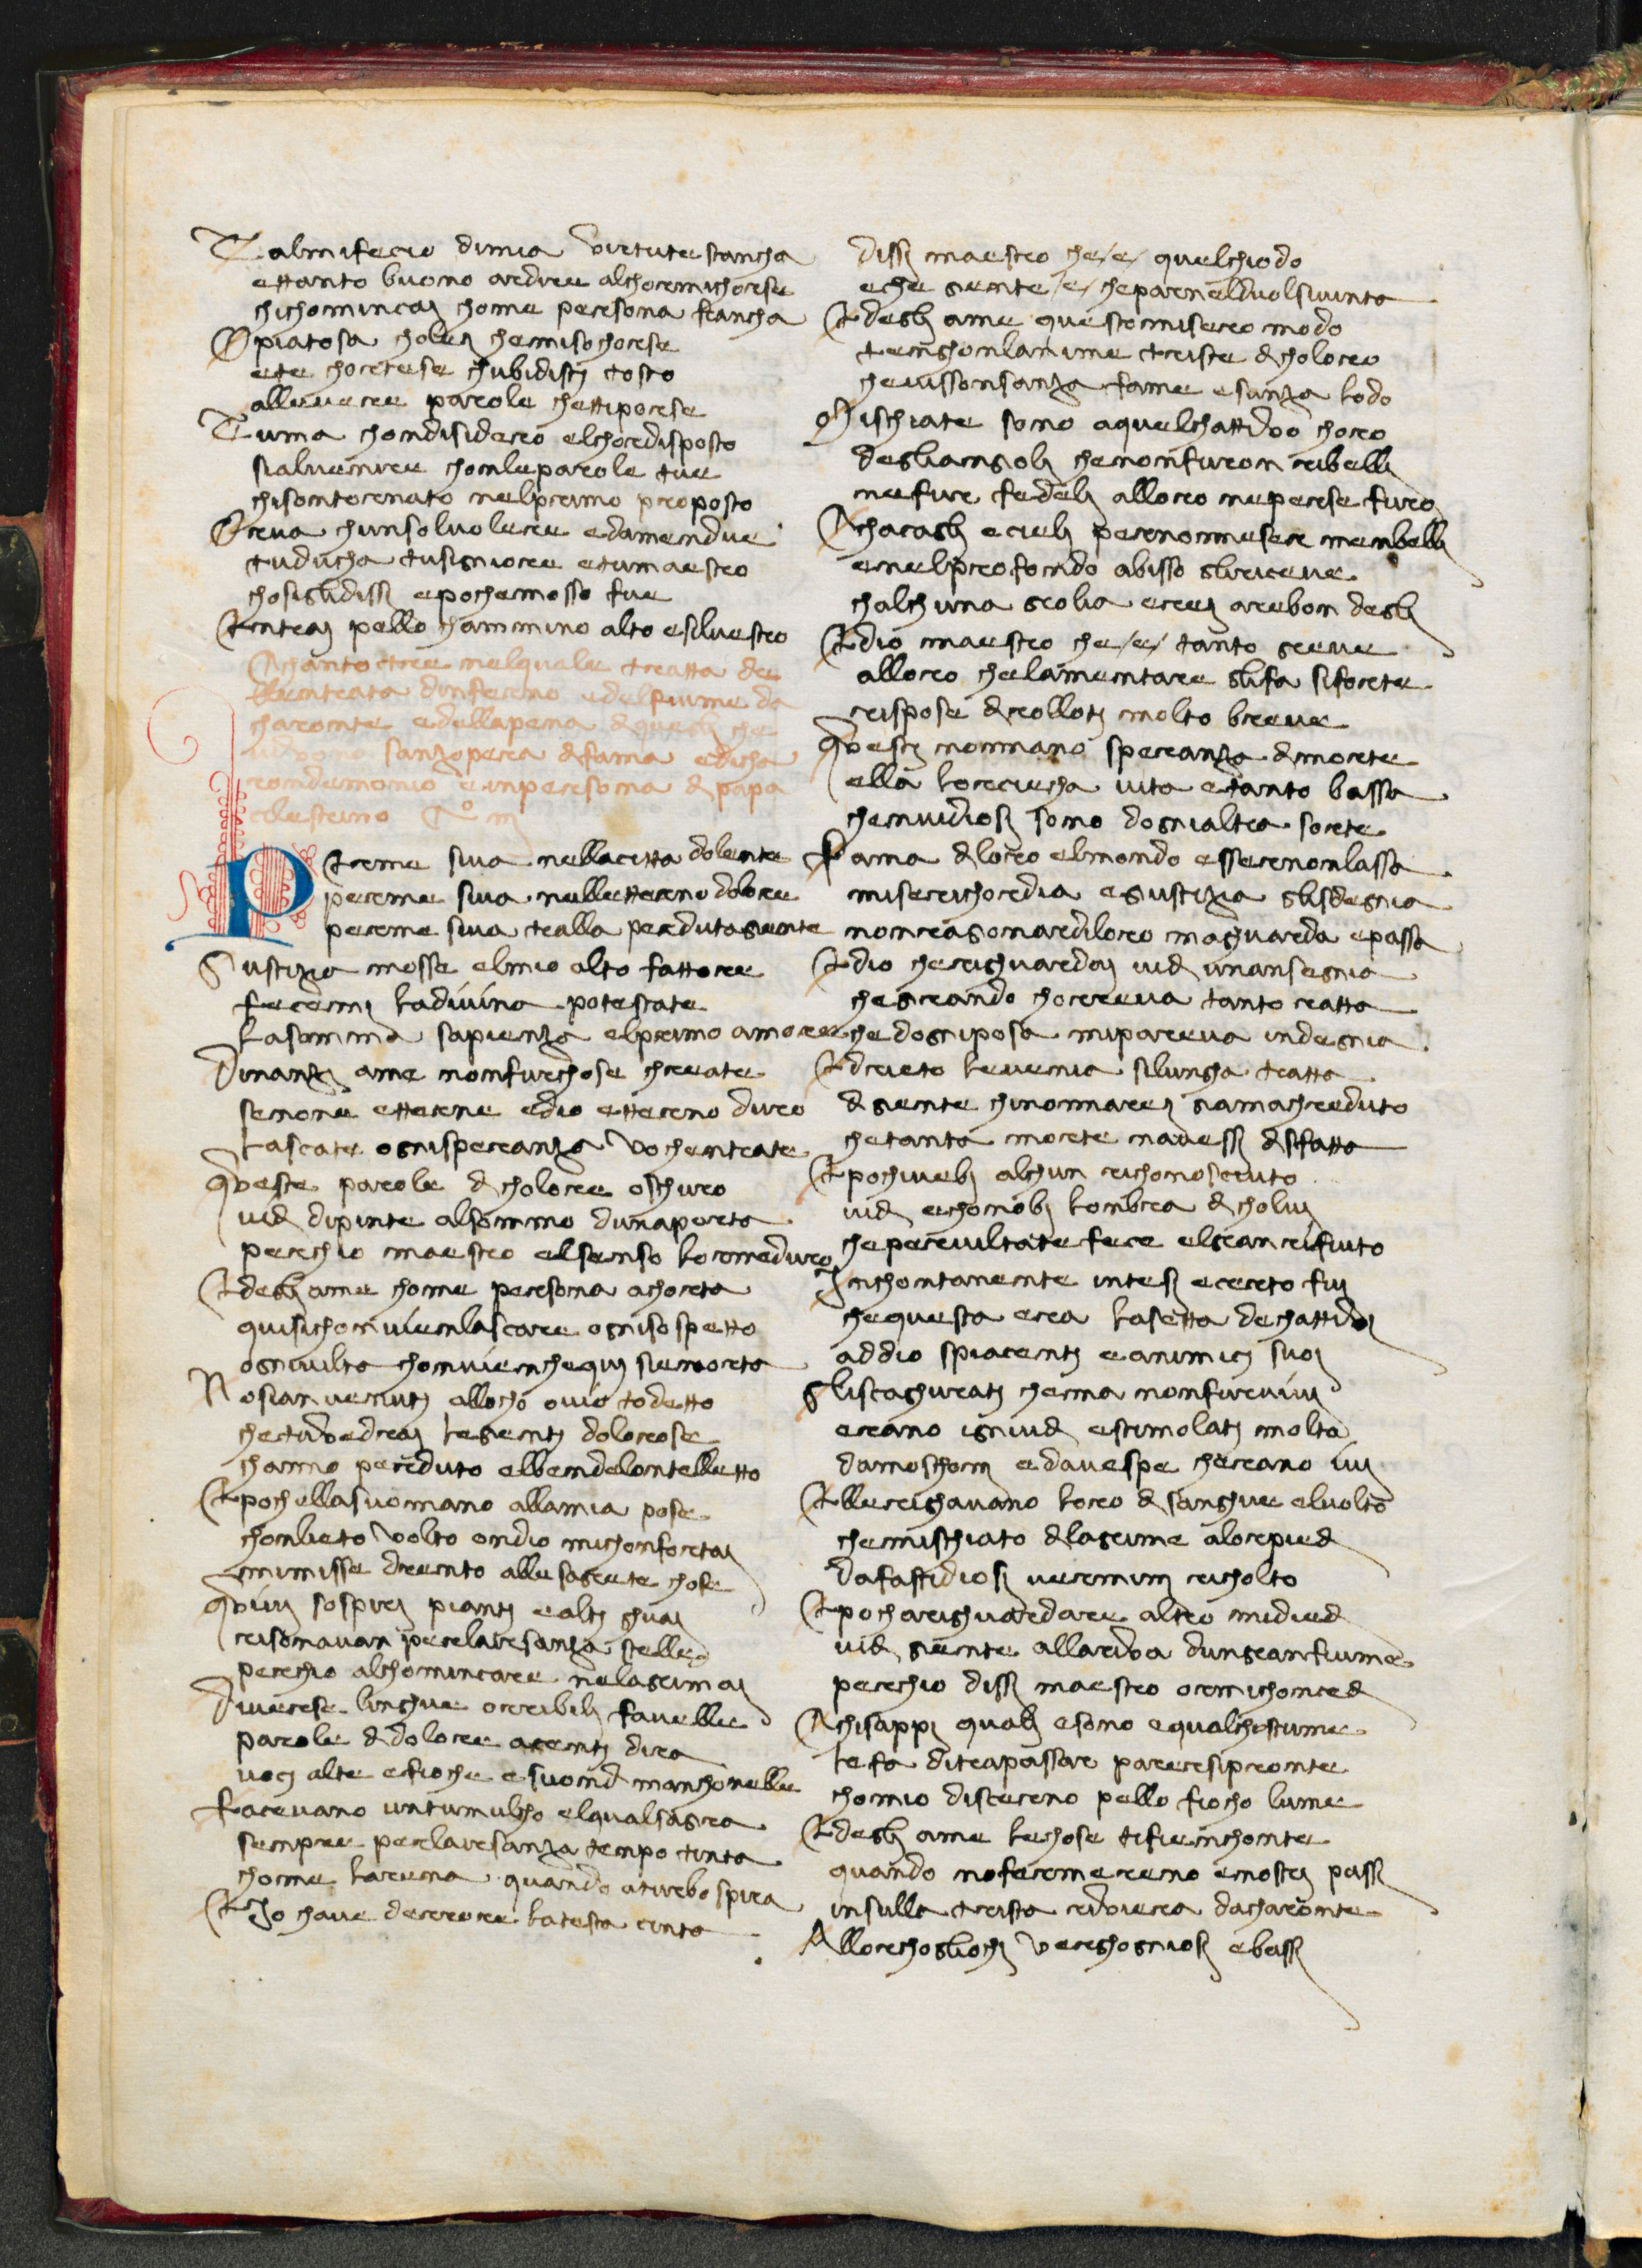 Talmifecio dimia virtute stancha
ettanto buono ardire alchormichorse
chichominciaj chome persona francha
O piatosa cholej chemisochorse
ette chortese chubidistj tosto
allevere parole chettiporse
Tuma chondisidero elchordisposto
sialvenire chonleparole tue
chisontornato nelprimo proposto
Orva chunsolvolere edamendue
tuducha tusigniore etumaestro
chosiglidissi epochemosso fue
Entraj pello chammino alto esilvestro
Chanto tre nelquale tratta de
llentrata dinferno edelfiume da
charonte edellapena di quegli che
vivono sanzopera difama edicha
rondemonio e inpersona di papa
cilestrino Co iij
Perme siva nellacitta dolente
perme siva nelletterno dolore
perme siva tralla perdutagiente
Giustizia mosse elmio alto fattore
fecemj ladivina potestate
lasomma sapienza elprimo amore
Dinanzj ame nonfurchose chreate
senone etterne edio etterno duro
lasciate ognisperanza vochentrate
Queste parole di cholore oschuro
vidi dipinte alsommo dunaporta
perchio maestro elsenso loromeduro
Edeglj ame chome persona achorta
quisichonvienlasciare ognisospetto
ognivilta chonvienchequj siemorta
Nosian venutj allocho ovio todetto
chettuvedraj legientj dolorose
channo perduto elbendelontelletto
Epochellasuomano allamia pose
chonlieto volto ondio michonfortaj
mimisse drento allesagrete chose
Quivj sospirj piantj ealtj ghuaj
risonavan perlairesanza stelle
perchio alchominciare nelagrimaj
Diverse linghue orribilj favelle
parole di dolore acientj dira
vocj alte efioche esuondi manchonelle
Facevano untumulcho elqualsagira
sempre perlairesanza tempo tinta
chome larena quando aturbo spira
E Io chave derrore latesta cinta
dissj maestro che/e/ quelchiodo
eche giente/e/ cheparneldvolsivinta
Edeglj ame questomisero modo
tenghonlanime triste di choloro
chevissonsanza fame esanza lodo
Mischiate sono aquelchattivo choro
degliangiolj chenonfuron ribellj
nefur fedelj alloro neperse furo
Chacaglj ecielj pernonneser menbellj
enelprofondo abisso gliriceve
chalchuna grolia ereej arebon deglj
Edio maestro che/e/ tanto greve
alloro chelamentare glifa siforte
rispose dicrollotj molto breve
Questj nonnano speranza dimorte
ella lorciecha vita etanto bassa
chenvidiosj sono dognialtra sorte
Fama di loro elmondo esserenonlassa
miserichordia egiustizia glisdegnia
nonragionardiloro maghuarda epassa
Edio cherighuardaj vidi unansegnia
chegirando chorreva tanto ratta
chedogniposa mipareva indegnia
Edrieto levenia silungha tratta
di giente chinonnarej giamachreduto
chetanta morte navessj disfatta
Epochivebj alchun richonosciuto
vidi echonobj lonbra di cholui
cheperviltate fece elgranrifiuto
Inchontanente intesj ecerto fuj
chequesta era lasetta dechattivj
addio spiacentj eanimicj suoj
Gliscaghuratj chema nonfurvivj
erano ignivdi estimolatj molto
damoschonj edavespe cherano ivj
Ellerighavano loro di sanghue elvolto
chemischiato dilagrime alorpiedi
dafastidiosj verminj richolto
Epocharighuardare altro midiedi
vidi giente allariva dungranfiume
perchio dissj maestro ormichonciedi
Chisappj qualj esono equalchostume
lefa ditrapassar parersipronte
chomio discierno pello fiocho lume
Edeglj ame lechose tifieinchonte
quando nofermereno enostrj passj
insulla trista riviera dacharonte
Allorchogliochj verghogniosj ebassj